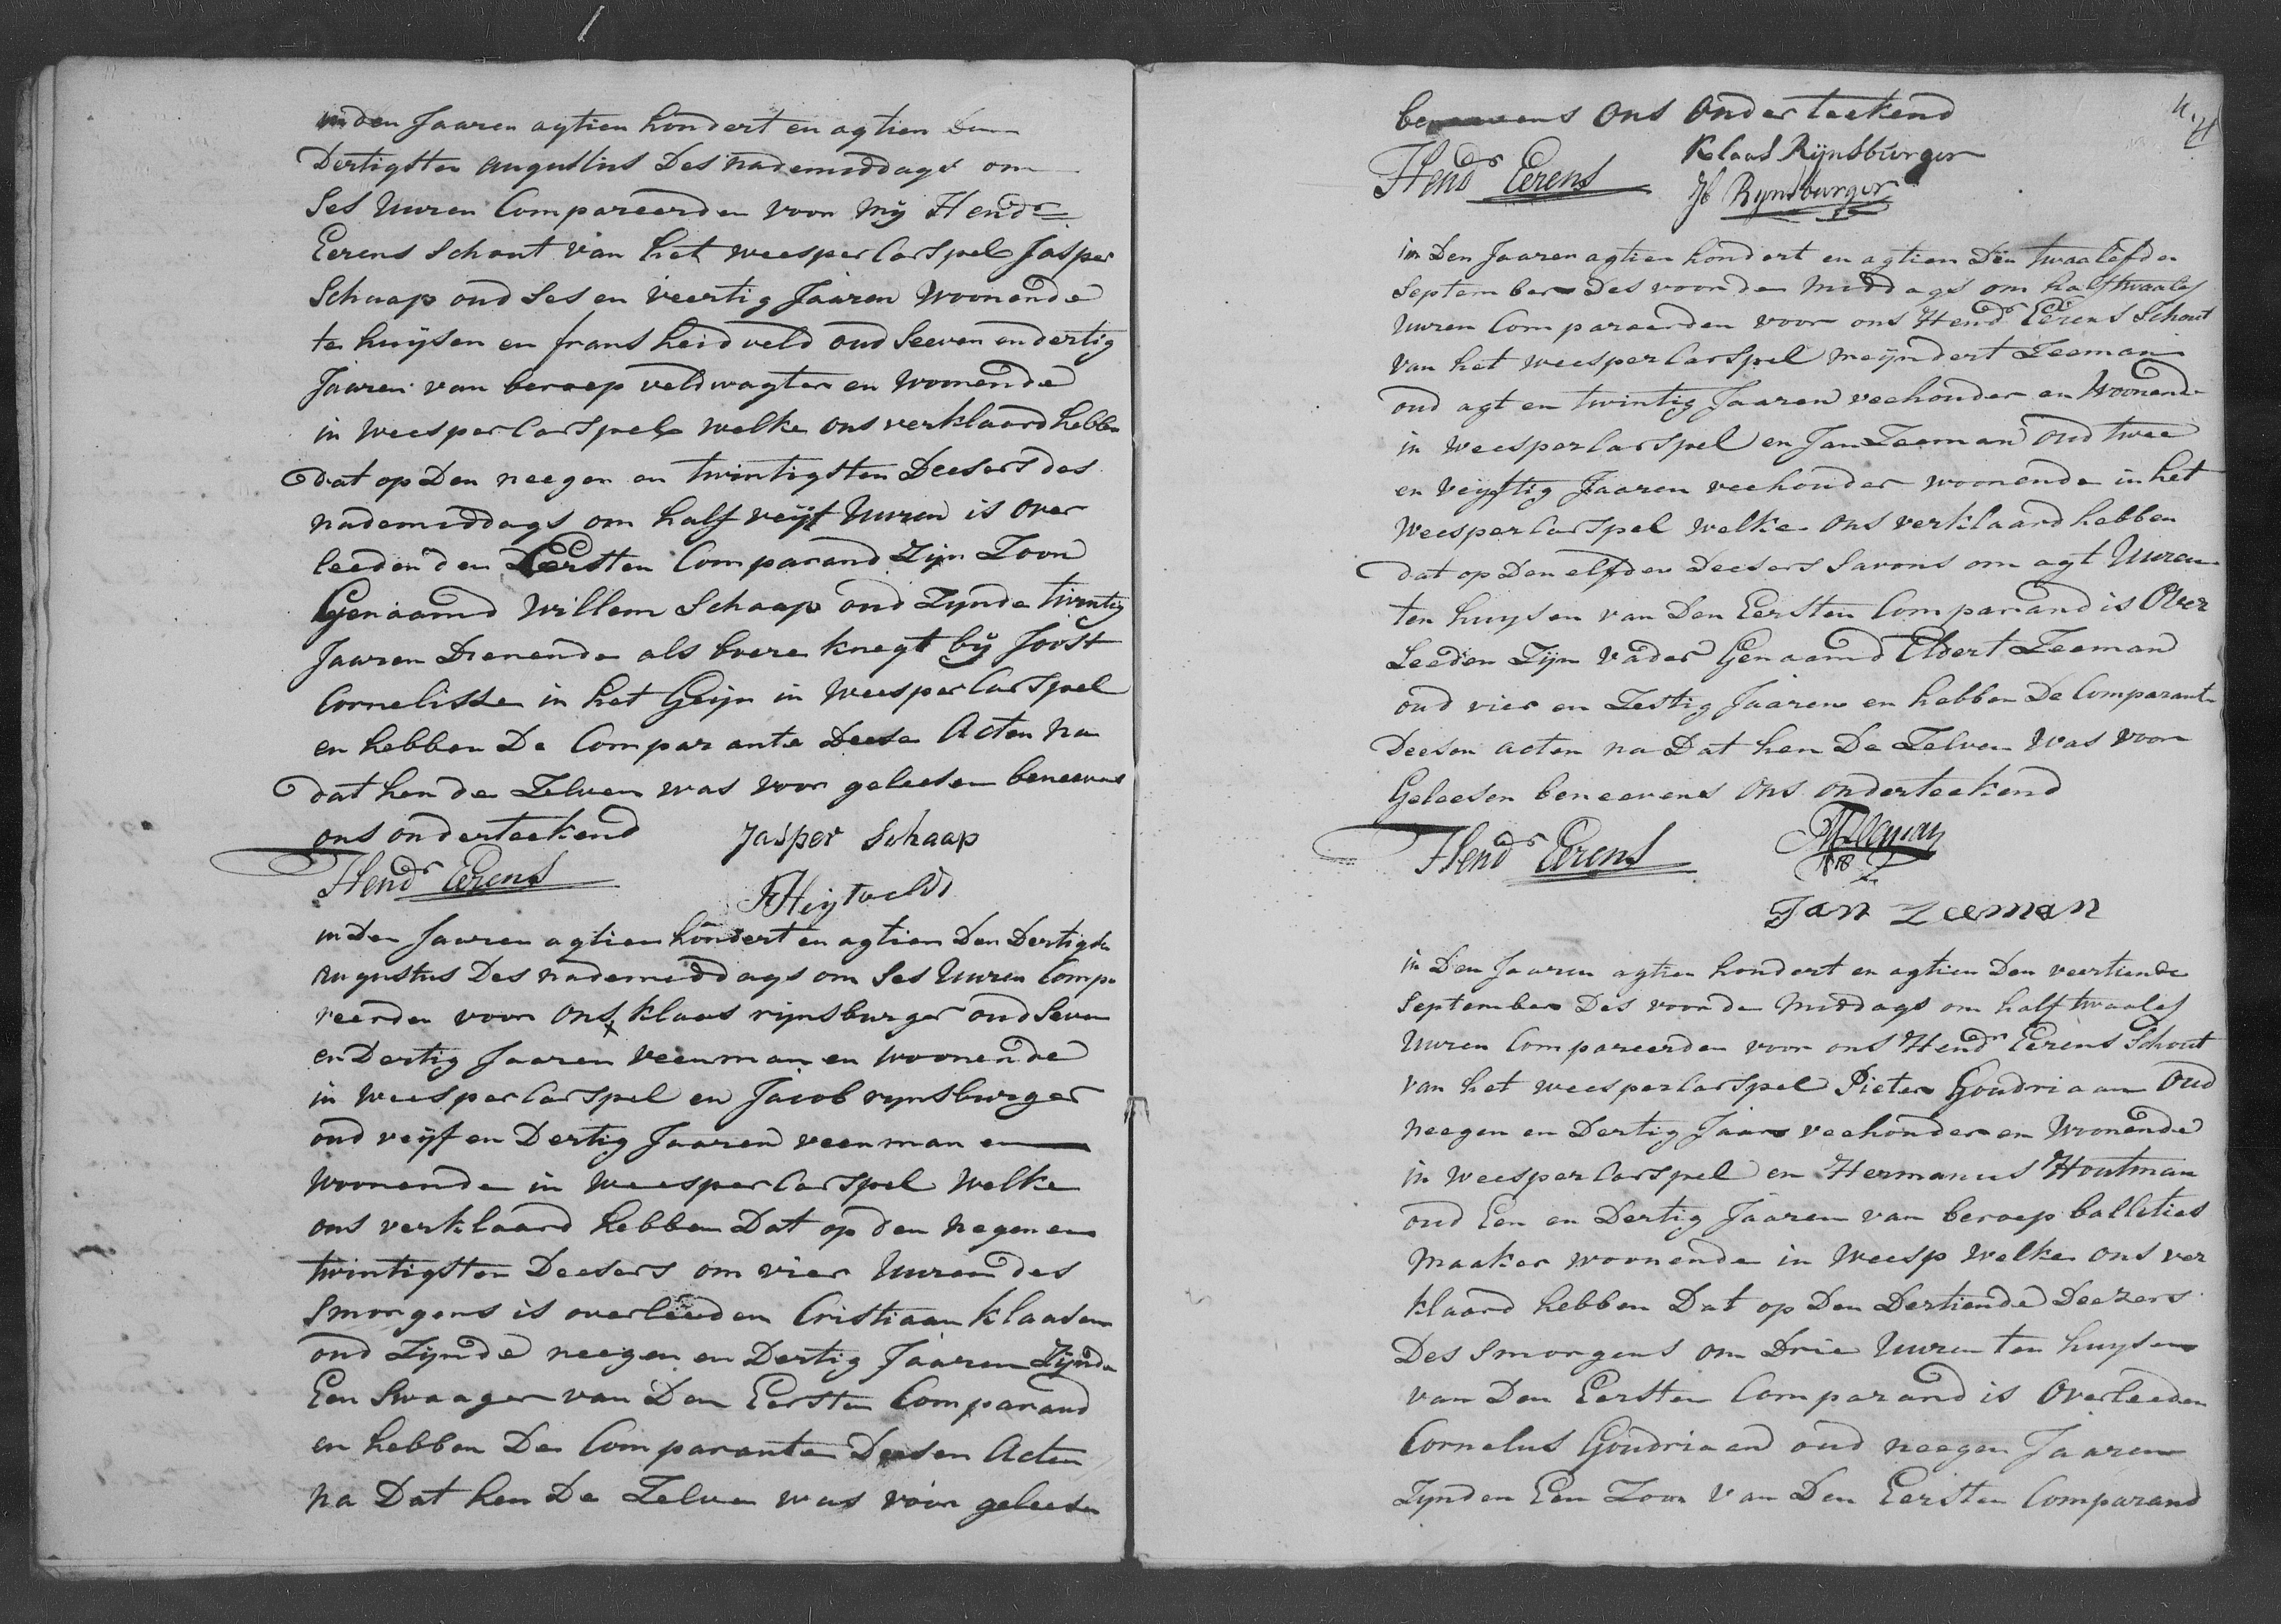 inden Jaaren agtien hondert en agtien Den
Dertigsten augustus Des nademiddags om
Ses Uuren Compareerden voor mij Hendr
Eerens Schout van het weesper Carspel Jasper
Schaap oud Ses en veertig Jaaren Woonende
te huijsen en frans heidveld oud Seeven en dertig
Jaaren van beroep veldwagter en woonende
in weesper Carspel welke ons verklaard hebben
dat op Den neegen en twintigsten Deesers des
nademiddags om half veijf Uuren is over
leeden den Eersten Comparand Zijn Zoon
Genaamd Willem Schaap oud Zynde twintig
Jaaren Dienende als boere knegt bij Joost
Cornelisse in het Geijn in Weesper Carspel
en hebben De Comparante Deese Acten na
dat hen de Zelven was voor geleesen beneevens
ons onderteekend
Jasper Schaap
Hendr Eerens
F Heijtveld
in Den Jaaren agtien hondert en agtien Den Dertigste
augustus Des nademiddags om Ses Uuren Compa
reerden voor ons klaas rijnsburger oud Seven
en Dertig Jaaren veenman en woonende
in weesper Carspel en Jacob rynsburger
oud veijf en Dertig Jaaren veenman en
woonende in weesper Carspel welke
ons verklaard hebben Dat op den negen en
twintigsten Deesers om vier Uuren des
Smorgens is overleeden Cristiaan klaasen
oud Zijnde neegen en Dertig Jaaren Zijnde
Een Swaager van Den Eersten Comparand
en hebben De Comparante Deesen Acten
na Dat hen De Zelven was voor geleesen
beneevens ons onderteekend
Klaas Rijnsburger
Hendr Eerens
Jb Rijnsburger
in Den Jaaren agtien hondert en agtien Den twaalefden
September Des voor den middags om half twaalef
Uuren Compareerden voor ons Hendr Eerens Schout
van het weesper Carspel meijndert Zeeman
oud agt en twintig Jaaren veehouder en Woonende
in weesper Carspel en Jan Zeeman oud twee
en veijftig Jaaren veehouder woonende in het
weesper Carspel welke ons verklaard hebben
dat op Den elfden deesers Savons om agt Uuren
ten huysen van Den Eersten Comparand is Over
Leeden Zijn vader Genaamd Elbert Zeeman
oud vier en Zestig Jaaren en hebben De Comparante
Deesen acten na Dat hen De Zelven was voor
Geleesen beneevens ons onderteekend
Hendr Eerens
Jan Zeeman
in Den Jaaren agtien hondert en agtien Den veertiende
September Des voor de middags om half twaalef
Uuren Compareerden voor ons Hendr Eerens Schout
van het weesper Carspel Pieter Goudriaan oud
neegen en Dertig Jaare veehouder en Woonende
in weesper Carspel en Hermanus Houtman
oud Een en Dertig Jaaren van beroep balleties
maaker woonende in Weesp welke ons ver
klaard hebben Dat op Den Dertiende Deezers
Des Smorgens om Drie Uuren ten huysen
van Den Eersten Comparand is Overleeden
Cornelus Goudriaan oud neegen Jaaren
Zynden Een Zoon Van Den Eersten Comparand